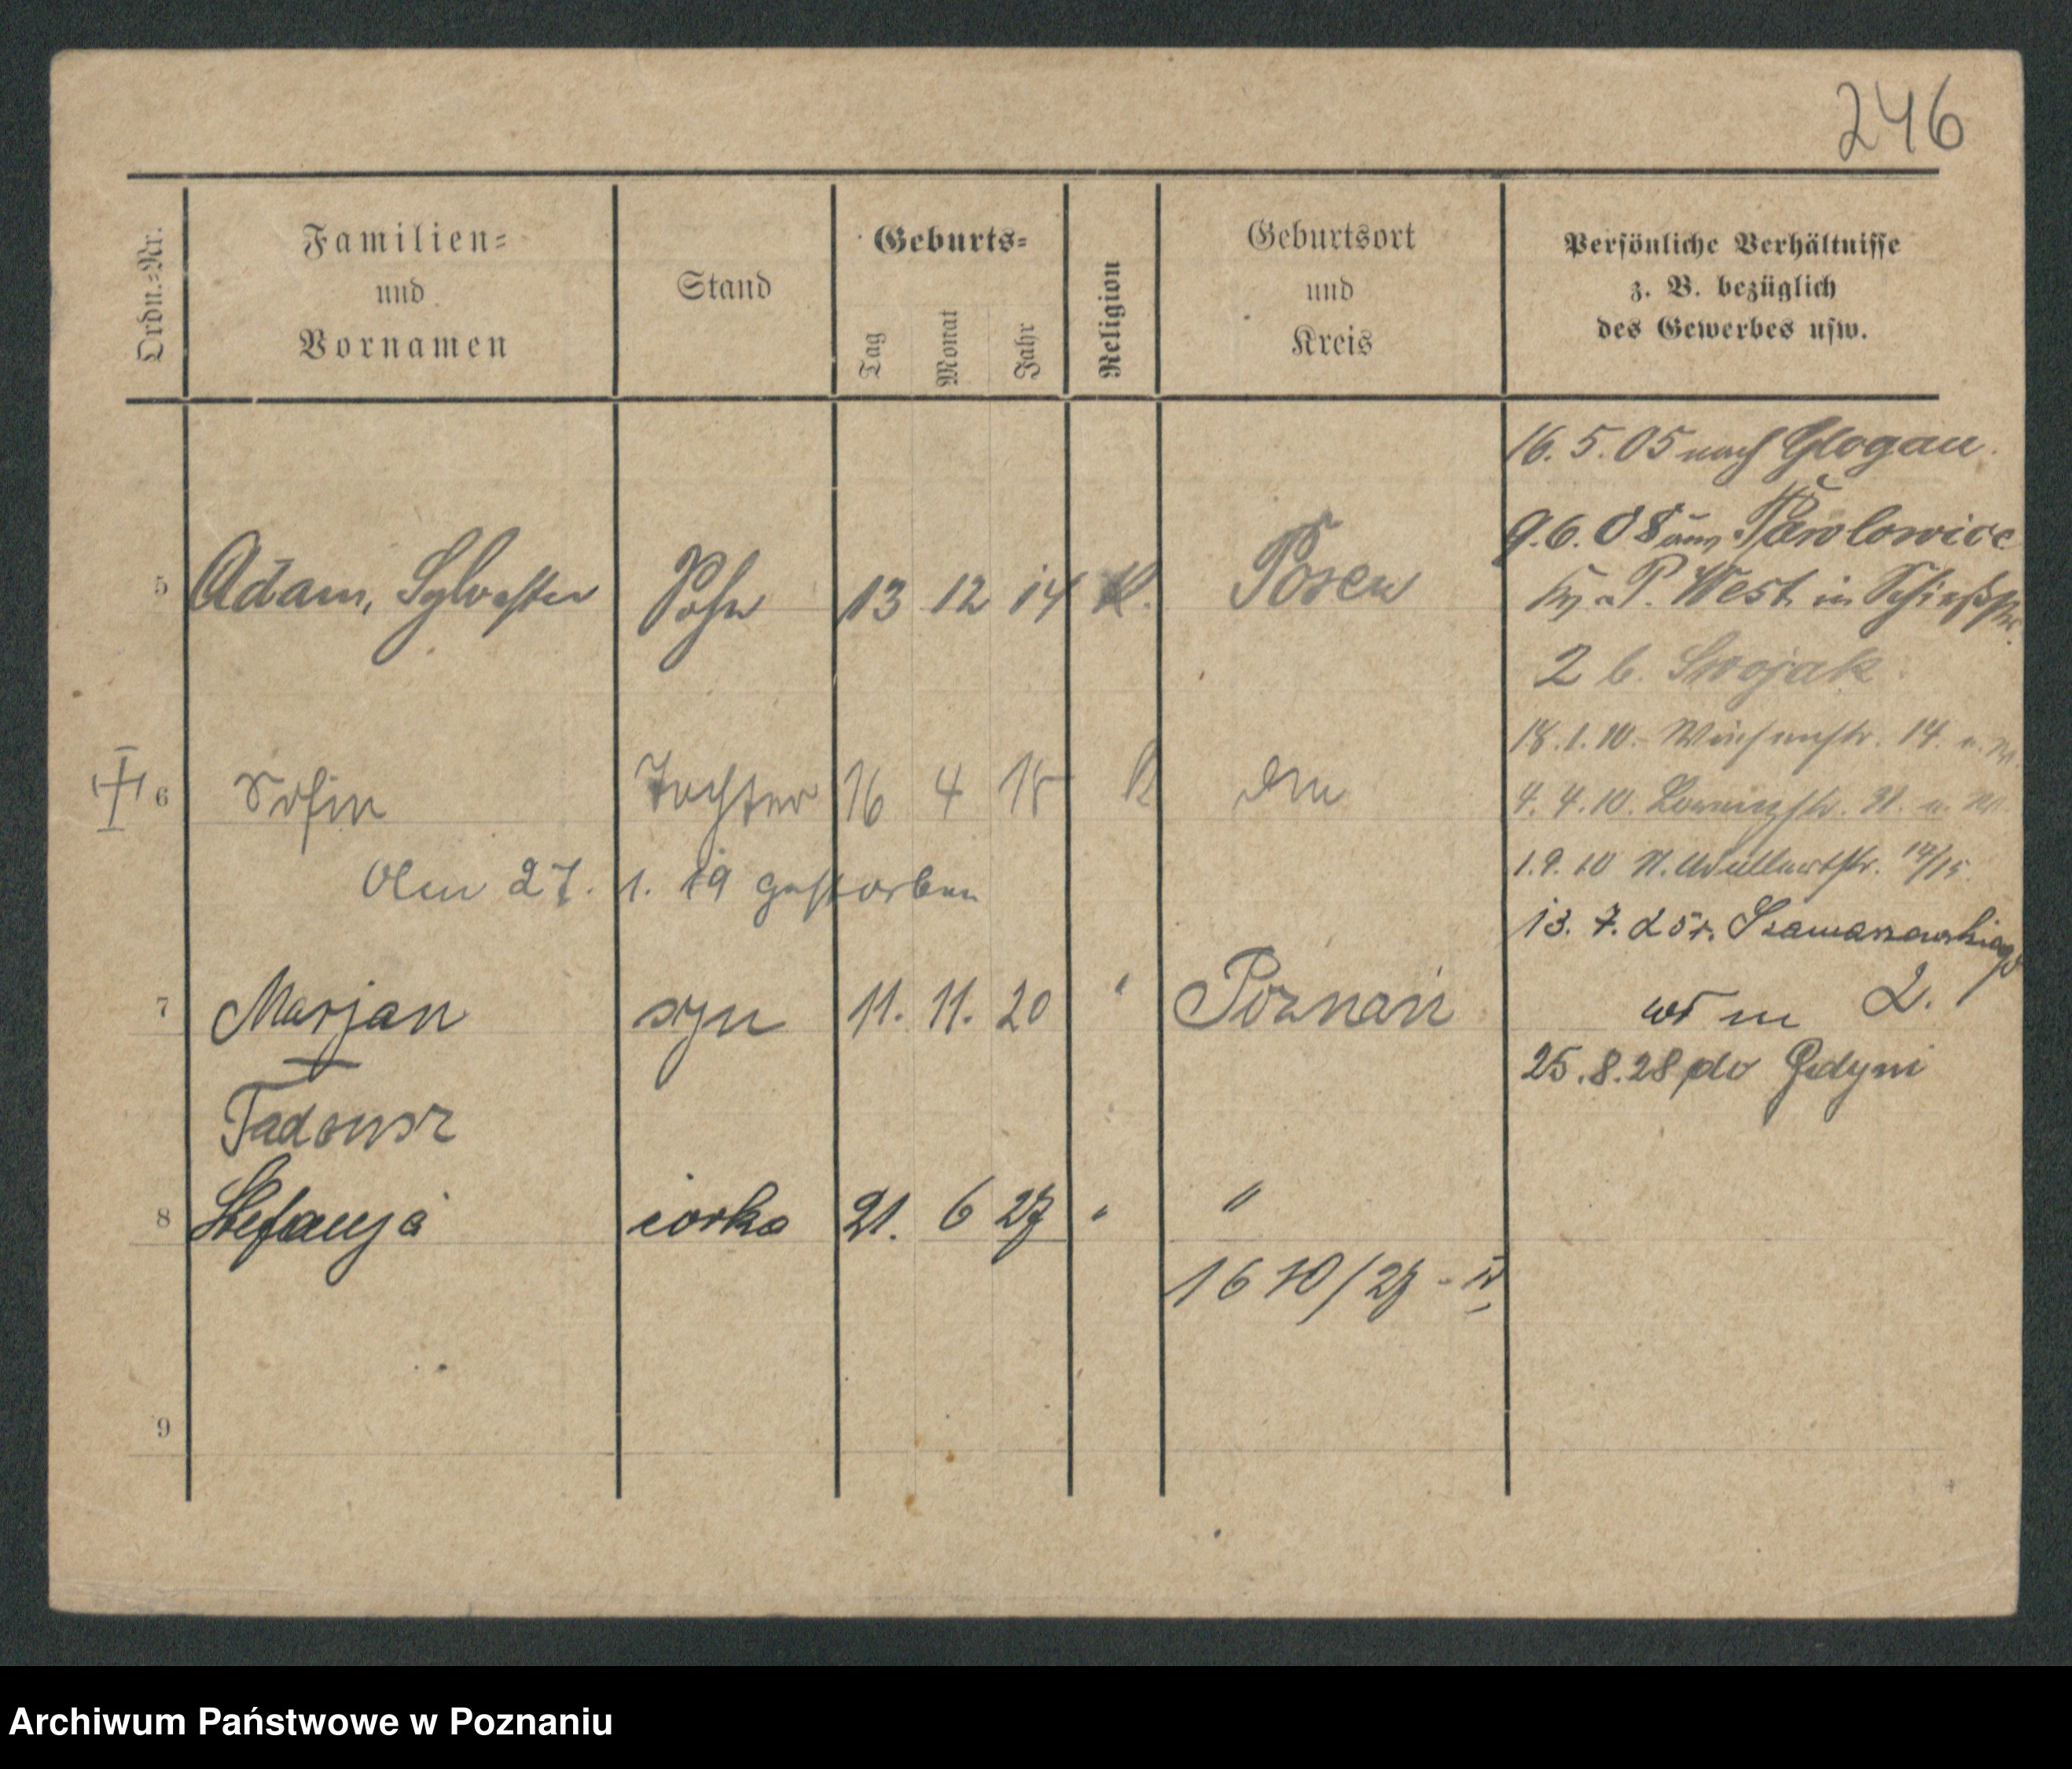 246
Ordn.-Nr.
Familien-
und
Vornamen
Stand
Geburts-
Tag
Monat
Jahr
Religion
Geburtsort
und
Kreis
Persönliche Verhältnisse
z. B. bezüglich
des Gewerbes usw.
16. 5. 05 nach Glogau.
9. 6. 08 aus Pawlowice
5 Adam, Sylvester Sohn 13 12 14 K. Posen
West in
2 b. Swojak.
18. 1. 10.
6 Sofia Tochter 16 4 18 k
4. 4. 10.
Am 27. 1. 19 gestorben
1. 9. 10 14/15.
13. 7. 25 r. Szamarzewskiego
2.
7 Marjan syn 11. 11. 20 " Poznań
25. 8. 28 do Gdyni
Tadeusz
8 Stefanja córka 21. 6 27 " "
1610/27 - IV
9
Archiwum Państwowe w Poznaniu